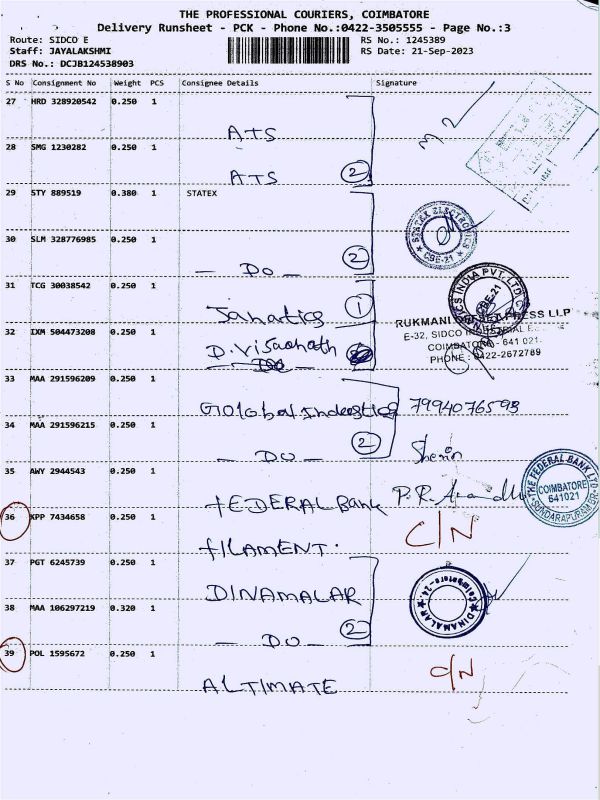 THE PROFESSIONAL COURIERS, COIMBATORE
Delivery Runsheet - PCK - Phone No.:0422-3505555 - Page No.:3
Route: SIDCO E
RS No.: 1245389
Staff: JAYALAKSHMI
RS Date: 21-Sep-2023
DRS No.: DCJB124538903
S No Consignment No Weight PCS Consignee Details Signature
27 HRD 328920542 0.250 1
ATS
28 SMG 1230282 0.250 1
ATS 2
29 STY 889519 0.380 1 STATEX
STATEX ELECTRONICS
CBE-21
30 SLM 328776985 0.250 1
- DO - 2
31 TCG 30038542 0.250 1
Janatics 1
INDIA PVT. LTD
CBE-21
RUKMANI OFFSET PRESS LLP
E-32, SIDCO INDUSTRIAL E
COIMBATORE - 641 021.
PHONE : 0422-2672789
32 IXM 504473208 0.250 1
D. Visaonath
33 MAA 291596209 0.250 1
Golobal Indeostics 7994076593
34 MAA 291596215 0.250 1
- DO - 2 Sherin
35 AWY 2944543 0.250 1
FEDERAL Bank
THE FEDERAL BANK LTD
COIMBATORE
641021
SUNDARAPURAM BR
36 KPP 7434658 0.250 1
FILAMENT. C/N
37 PGT 6245739 0.250 1
DINAMALAR
DINAMALAR
Coimbatore-24.
38 MAA 106297219 0.320 1
- DO - 2
39 POL 1595672 0.250 1
ALTIMATE C/N